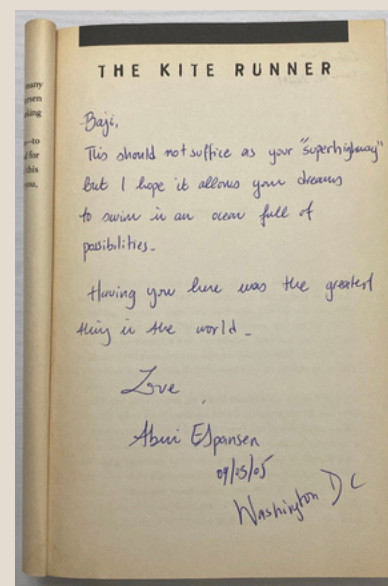 many
rsen
king
—to
d for
this
you,
THE KITE RUNNER
Baji,
This should not suffice as your "superhighway"
but I hope it allows your dreams
to swim in an ocean full of
possibilities.
Having you here was the greatest
thing in the world.
Love
09/05/05
Washington DC